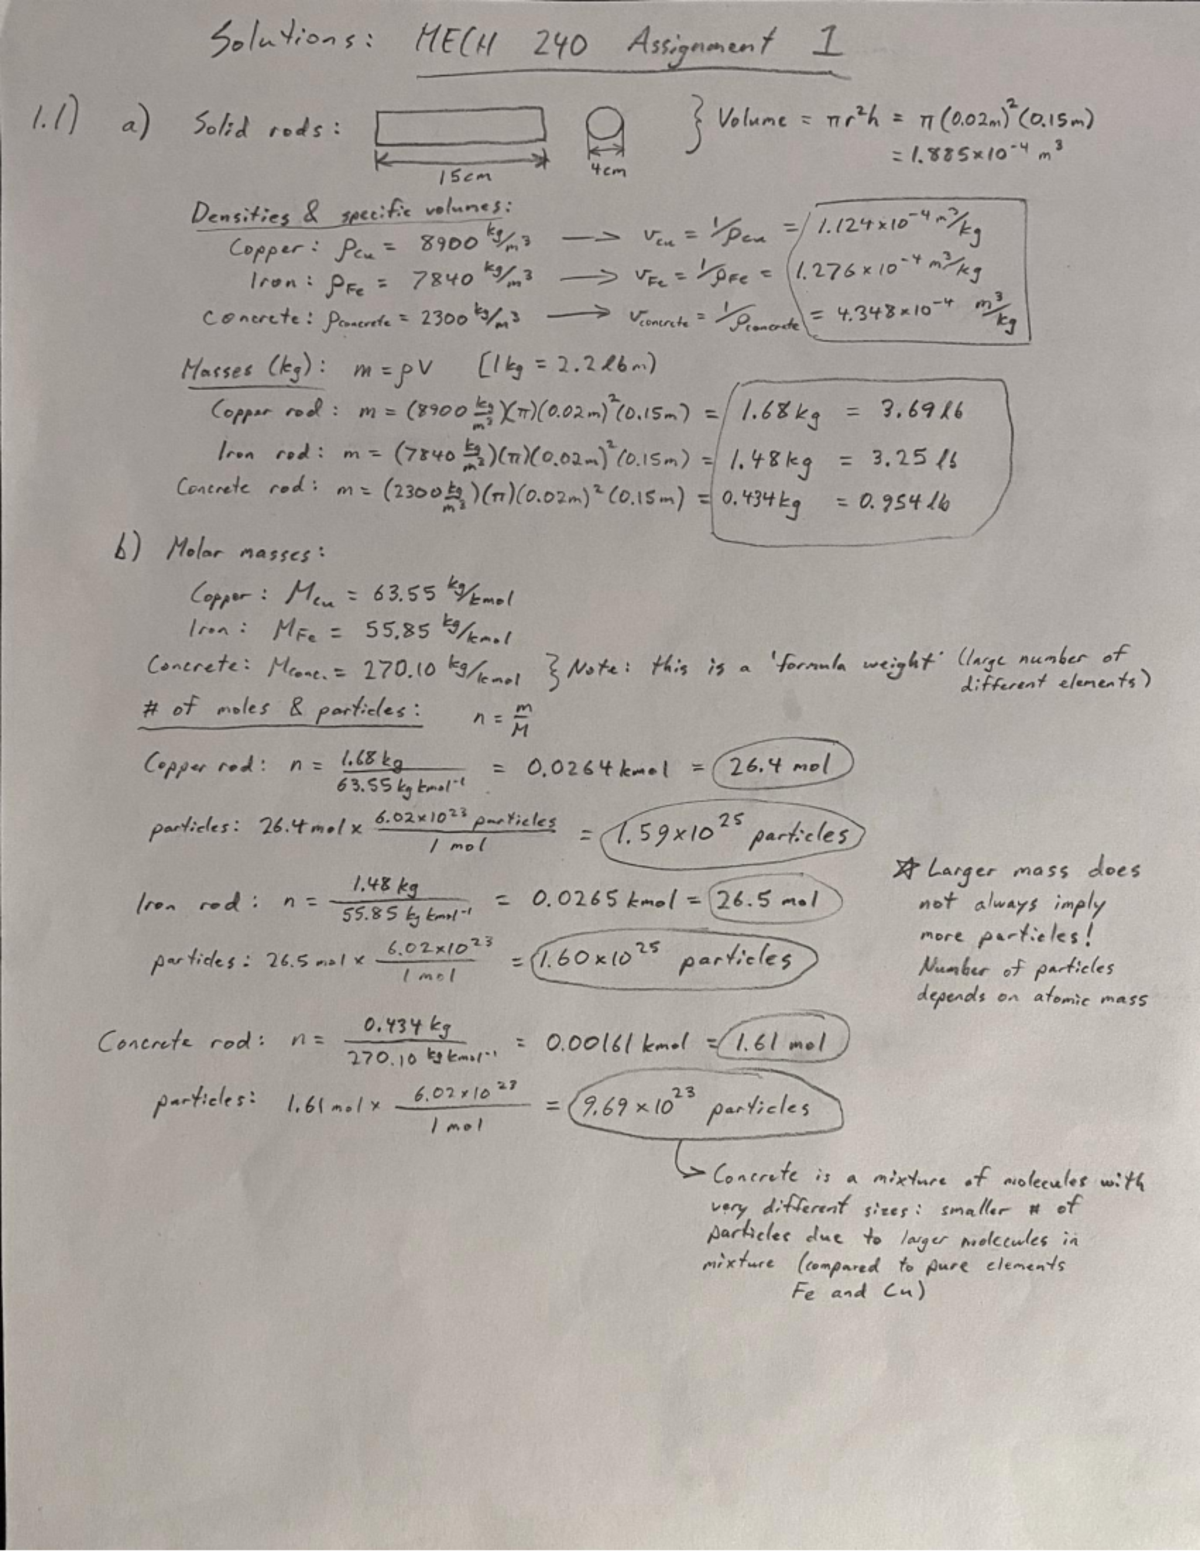 Solutions: MECH 240 Assignment 1
1.1) a) Solid rods: } Volume = πr²h = π(0.02m)²(0.15m)
= 1.885×10⁻⁴ m³
15cm 4cm
Densities & specific volumes:
Copper: ρCu = 8900 kg/m³ → vcu = 1/ρcu = 1.124×10⁻⁴ m³/kg
Iron: ρFe = 7840 kg/m³ → vFe = 1/ρFe = 1.276×10⁻⁴ m³/kg
Concrete: ρconcrete = 2300 kg/m³ → vconcrete = 1/ρconcrete = 4.348×10⁻⁴ m³/kg
Masses (kg): m = ρV [1kg = 2.2 lbm)
Copper rod: m = (8900 kg/m³)(π)(0.02m)²(0.15m) = 1.68kg = 3.69 lb
Iron rod: m = (7840 kg/m³)(π)(0.02m)²(0.15m) = 1.48kg = 3.25 lb
Concrete rod: m = (2300 kg/m³)(π)(0.02m)²(0.15m) = 0.434kg = 0.954 lb
b) Molar masses:
Copper: Mcu = 63.55 kg/kmol
Iron: MFe = 55.85 kg/kmol
Concrete: Mconc. = 270.10 kg/kmol } Note: this is a 'formula weight' (large number of
different elements)
# of moles & particles: n = m/M
Copper rod: n = 1.68 kg / 63.55 kg kmol⁻¹ = 0.0264 kmol = 26.4 mol
particles: 26.4 mol × 6.02×10²³ particles / 1 mol = 1.59×10²⁵ particles
Iron rod: n = 1.48 kg / 55.85 kg kmol⁻¹ = 0.0265 kmol = 26.5 mol
particles: 26.5 mol × 6.02×10²³ / 1 mol = 1.60×10²⁵ particles
☆ Larger mass does
not always imply
more particles!
Number of particles
depends on atomic mass
Concrete rod: n = 0.434 kg / 270.10 kg kmol⁻¹ = 0.00161 kmol = 1.61 mol
particles: 1.61 mol × 6.02×10²³ / 1 mol = 9.69×10²³ particles
→ Concrete is a mixture of molecules with
very different sizes: smaller # of
particles due to larger molecules in
mixture (compared to pure elements
Fe and Cu)